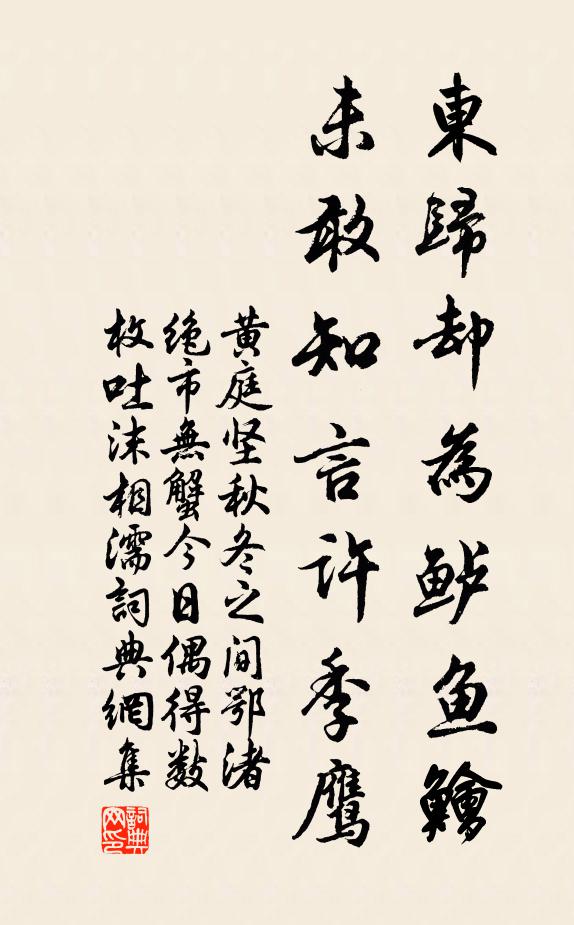 東歸却為鲈鱼鱠
未敢知言許季鹰
黄庭坚秋冬之间鄂渚
绝市無蟹今日偶得数
枚吐沫相濡詞典網集
詞典网印